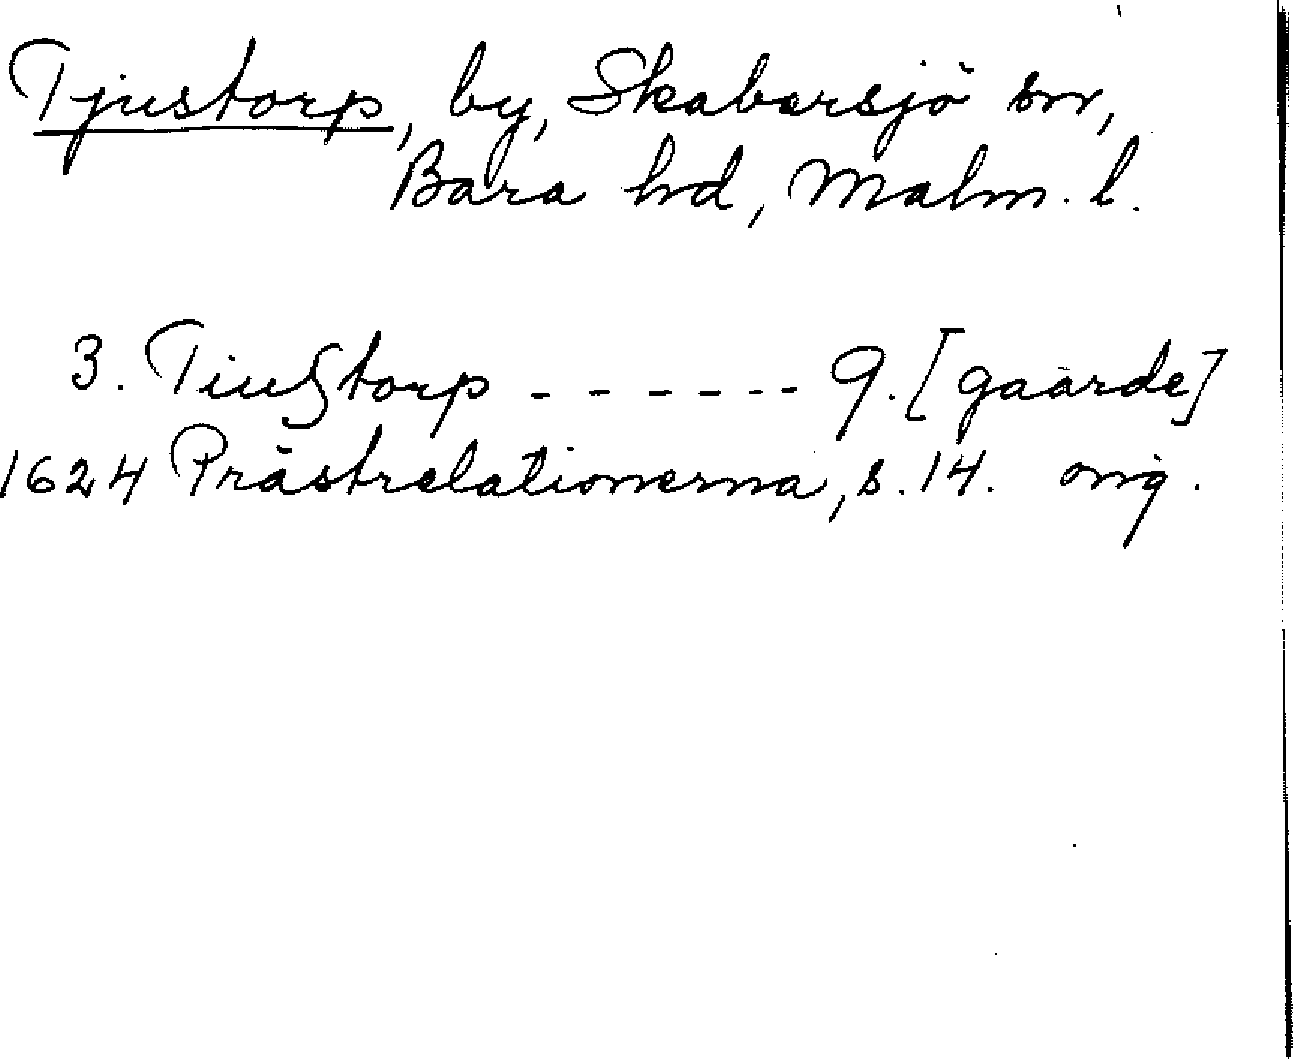 Tjustorp, by, Skabersjö sn,
Bara hd, Malm. l.
3. Tiußtorp - - - - - - 9. [gaarde]
1624 Prästrelationerna, s. 14. orig.